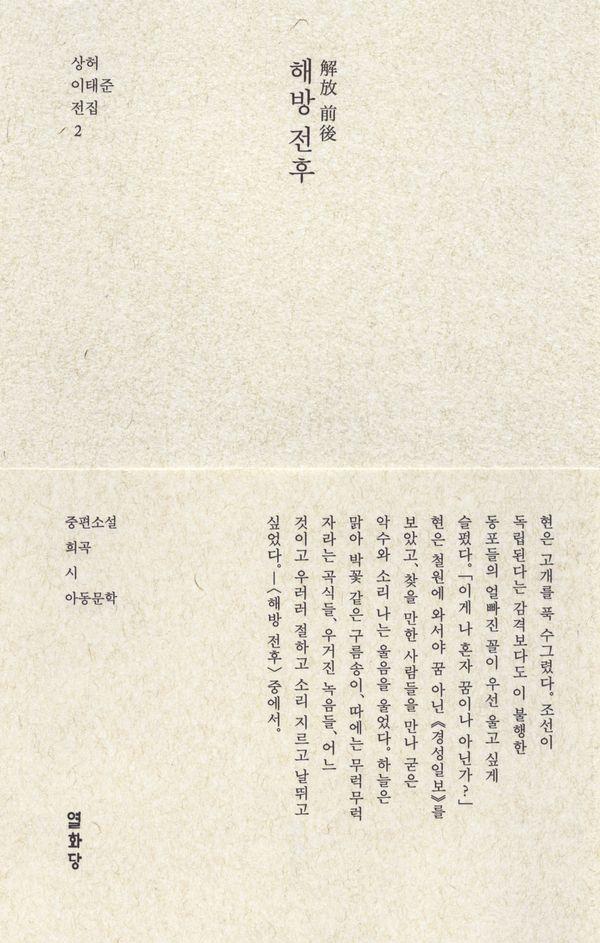 상허
이태준
전집
2
解放 前後
해방 전후
현은 고개를 푹 수그렸다. 조선이
독립된다는 감격보다도 이 불행한
동포들의 얼빠진 꼴이 우선 울고 싶게
슬펐다. 「이게 나 혼자 꿈이나 아닌가?」
현은 철원에 와서야 꿈 아닌 《경성일보》를
보았고, 찾을 만한 사람들을 만나 굳은
악수와 소리 나는 울음을 울었다. 하늘은
맑아 박꽃 같은 구름송이, 따에는 무럭무럭
자라는 곡식들, 우거진 녹음들, 어느
것이고 우러러 절하고 소리 지르고 날뛰고
싶었다. —〈해방 전후〉 중에서.
중편소설
희곡
시
아동문학
열화당